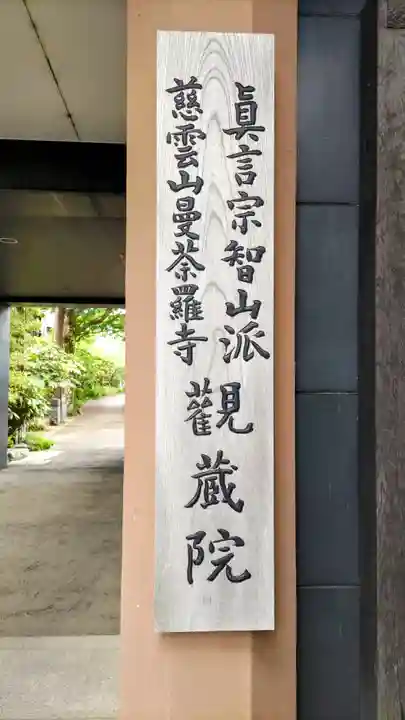 眞言宗智山派
慈雲山曼荼羅寺
觀蔵院